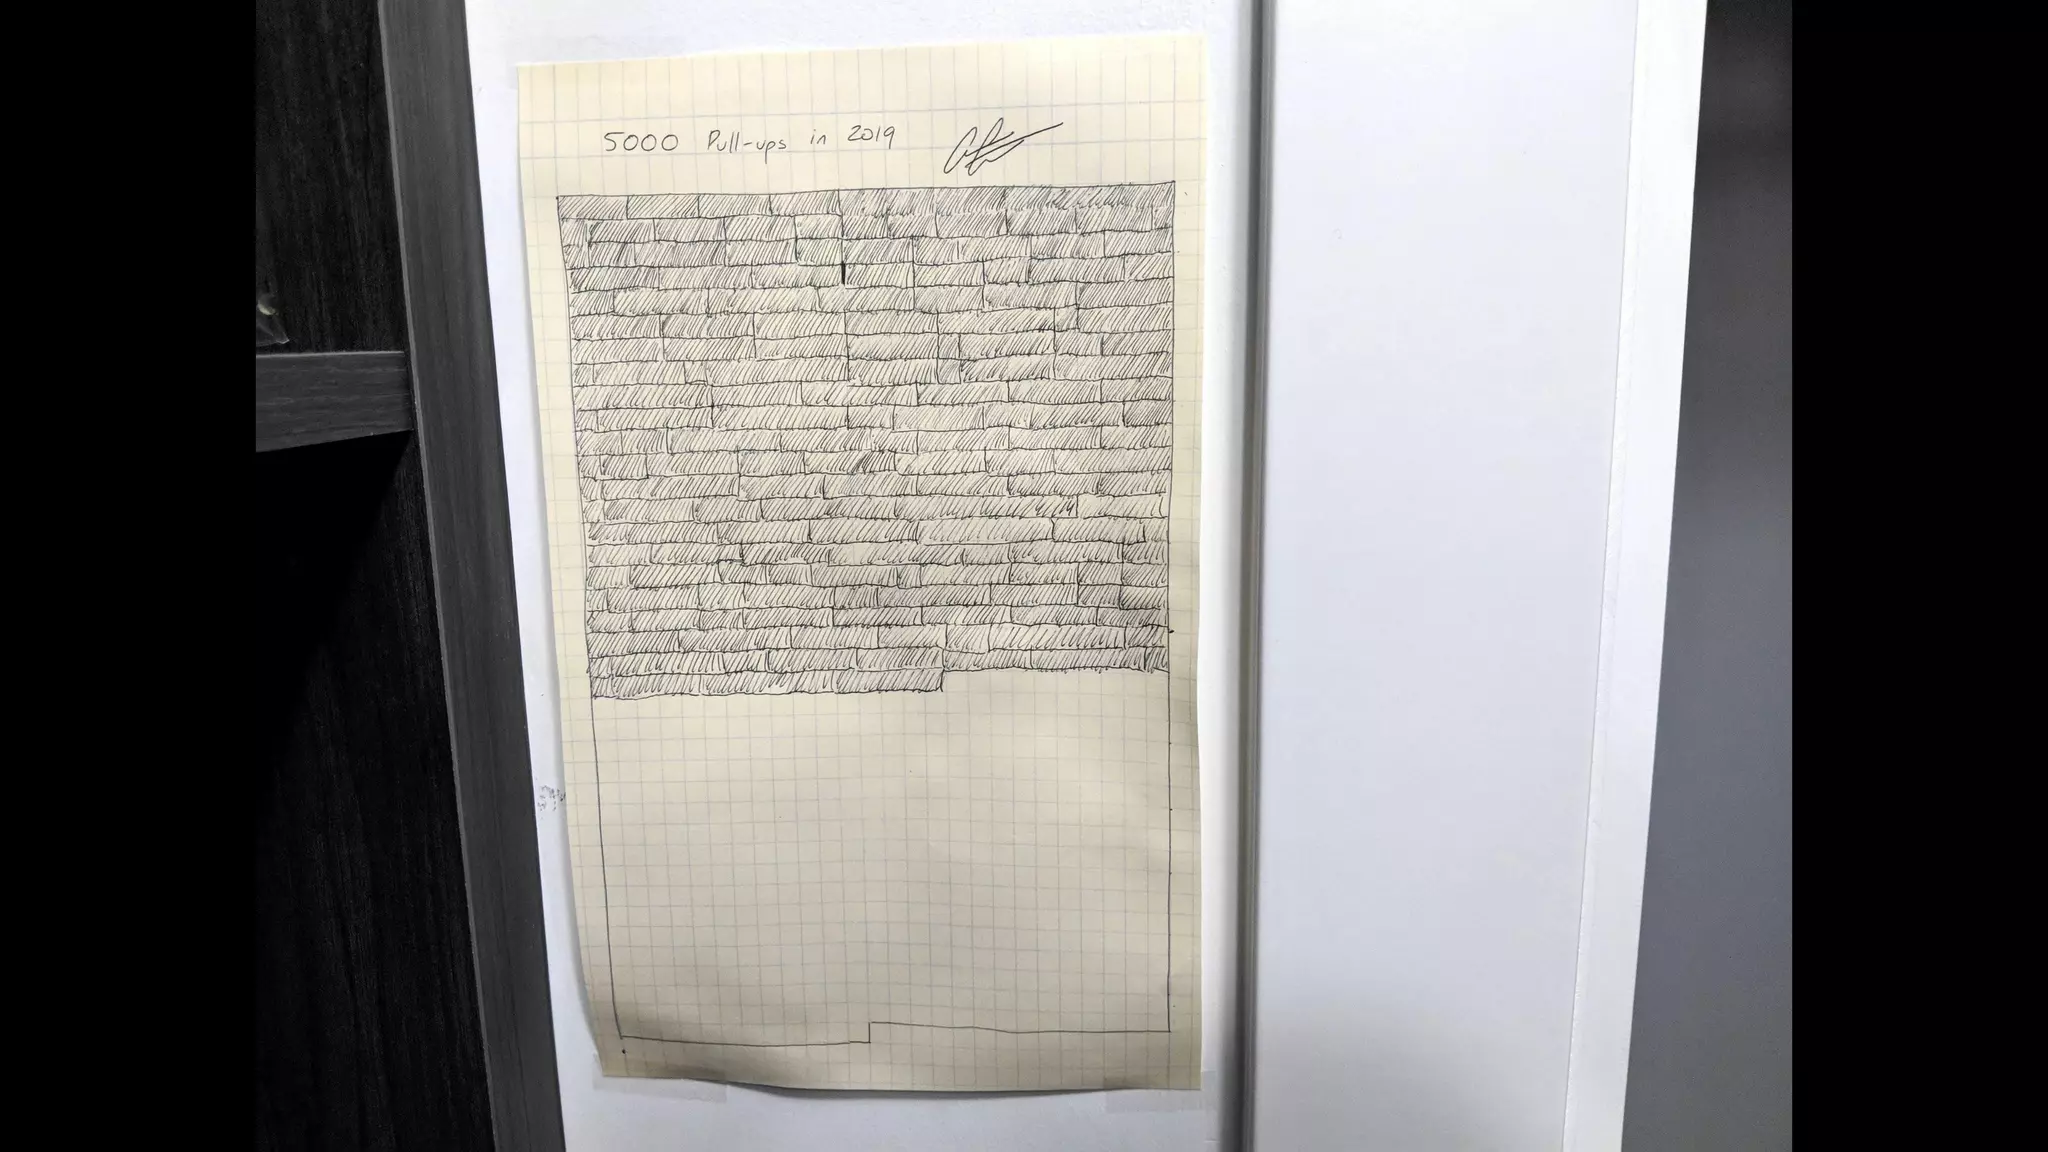 5000 Pull-ups in 2019